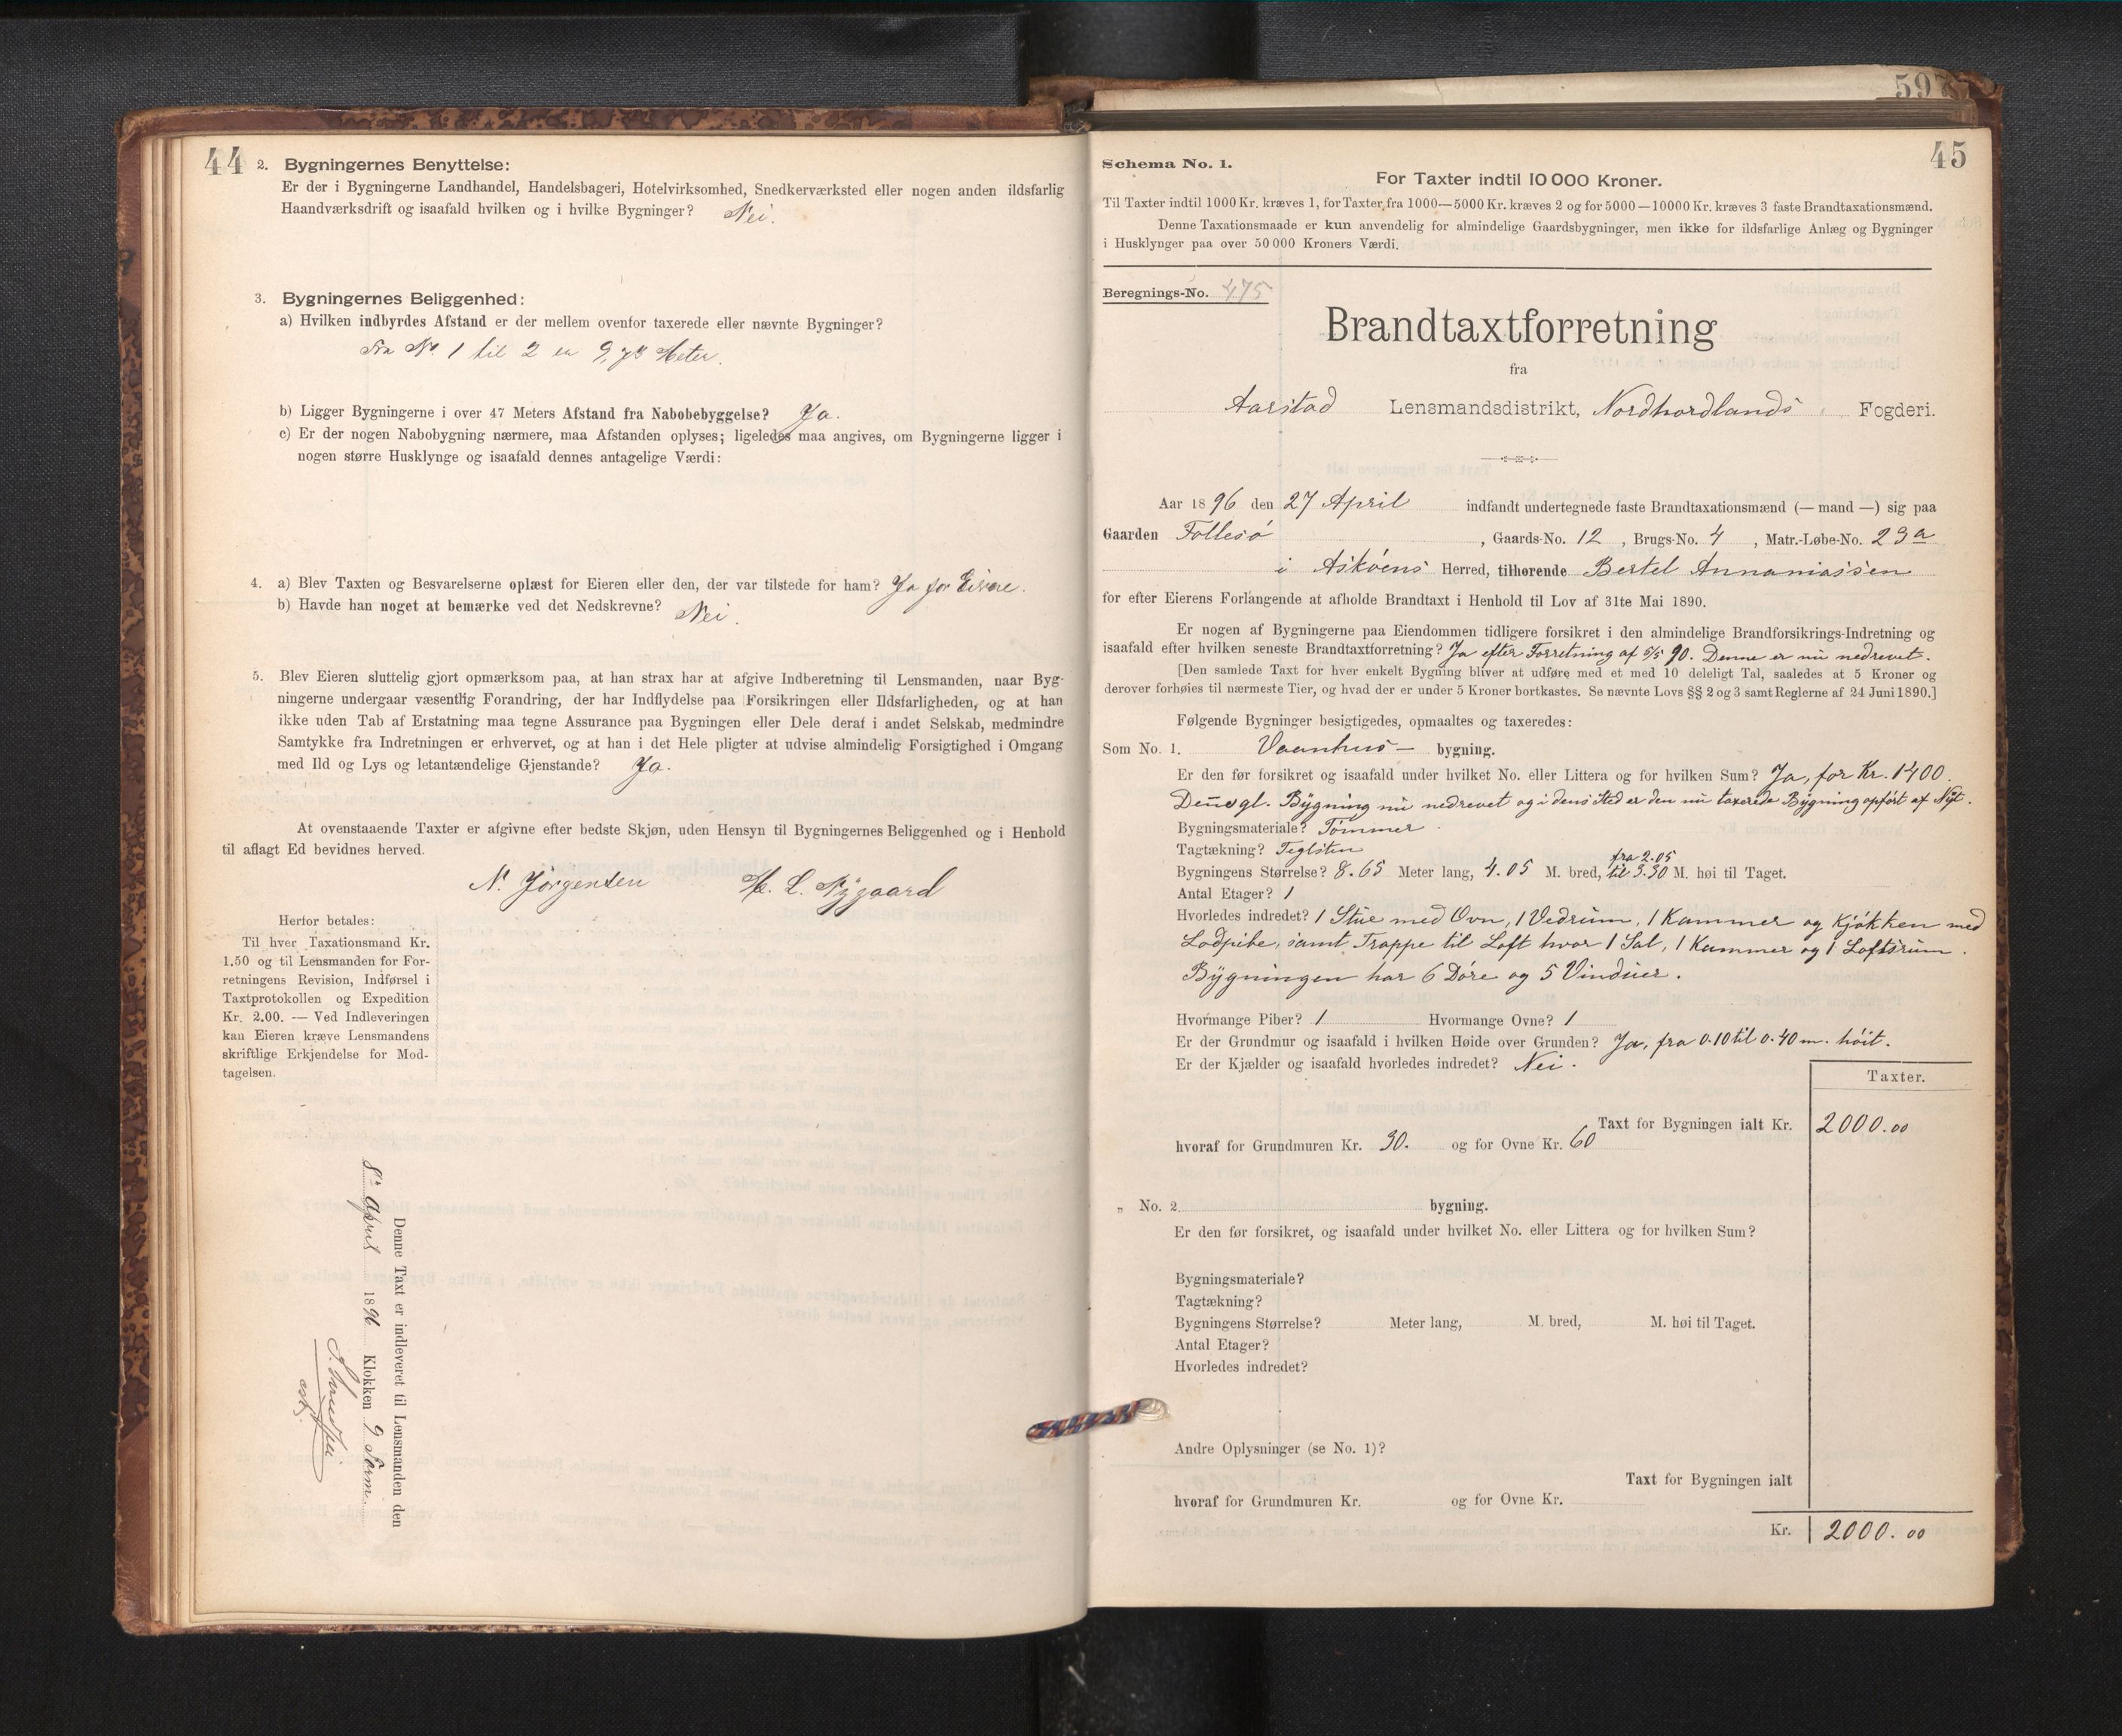 44
2. Bygningernes Benyttelse:
Er der i Bygningerne Landhandel, Handelsbageri, Hotelvirksomhed, Snedkerværksted eller nogen anden ildsfarlig
Haandværksdrift og isaafald hvilken og i hvilke Bygninger? Nei.
3. Bygningernes Beliggenhed:
a) Hvilken indbyrdes Afstand er der mellem ovenfor taxerede eller nævnte Bygninger?
Fra No. 1 til 2 er 9,73 Meter.
b) Ligger Bygningerne i over 47 Meters Afstand fra Nabobebyggelse? Ja.
c) Er der nogen Nabobygning nærmere, maa Afstanden oplyses; ligeledes maa angives, om Bygningerne ligger i
nogen større Husklynge og isaafald dennes antagelige Værdi:
4. a) Blev Taxten og Besvarelserne oplæst for Eieren eller den, der var tilstede for ham? Ja for Eieren.
b) Havde han noget at bemærke ved det Nedskrevne? Nei.
5. Blev Eieren sluttelig gjort opmærksom paa, at han strax har at afgive Indberetning til Lensmanden, naar Byg-
ningerne undergaar væsentlig Forandring, der har Indflydelse paa Forsikringen eller Ildsfarligheden, og at han
ikke uden Tab af Erstatning maa tegne Assurance paa Bygningen eller Dele deraf i andet Selskab, medmindre
Samtykke fra Indretningen er erhvervet, og at han i det Hele pligter at udvise almindelig Forsigtighed i Omgang
med Ild og Lys og letantændelige Gjenstande? Ja.
At ovenstaaende Taxter er afgivne efter bedste Skjøn, uden Hensyn til Bygningernes Beliggenhed og i Henhold
til aflagt Ed bevidnes herved.
N. Jörgensen H. L. Nygaard
Herfor betales:
Til hver Taxationsmand Kr.
1.50 og til Lensmanden for For-
retningens Revision, Indførsel i
Taxtprotokollen og Expedition
Kr. 2.00. — Ved Indleveringen
kan Eieren kræve Lensmandens
skriftlige Erkjendelse for Mod-
tagelsen.
Denne Taxt er indleveret til Lensmanden den
8de April 1896 Klokken 9 Form.
597
45
Schema No. 1.
For Taxter indtil 10 000 Kroner.
Til Taxter indtil 1000 Kr. kræves 1, for Taxter fra 1000—5000 Kr. kræves 2 og for 5000—10000 Kr. kræves 3 faste Brandtaxationsmænd.
Denne Taxationsmaade er kun anvendelig for almindelige Gaardsbygninger, men ikke for ildsfarlige Anlæg og Bygninger
i Husklynger paa over 50 000 Kroners Værdi.
Beregnings-No. 475
Brandtaxtforretning
fra
Aarstad Lensmandsdistrikt, Nordhordlands Fogderi.
Aar 1896 den 27 April indfandt undertegnede faste Brandtaxationsmænd (— mand —) sig paa
Gaarden Follesö, Gaards-No. 12, Brugs-No. 4, Matr.-Løbe-No. 23a
i Asköens Herred, tilhørende Bertel Annaniassen
for efter Eierens Forlangende at afholde Brandtaxt i Henhold til Lov af 31te Mai 1890.
Er nogen af Bygningerne paa Eiendommen tidligere forsikret i den almindelige Brandforsikrings-Indretning og
isaafald efter hvilken seneste Brandtaxtforretning? Ja efter Forretning af 5/5 90. Denne er nu nedrevet.
[Den samlede Taxt for hver enkelt Bygning bliver at udføre med et med 10 deleligt Tal, saaledes at 5 Kroner og
derover forhøies til nærmeste Tier, og hvad der er under 5 Kroner bortkastes. Se nævnte Lovs §§ 2 og 3 samt Reglerne af 24 Juni 1890.]
Følgende Bygninger besigtigedes, opmaaltes og taxeredes:
Som No. 1. Vaanhus— bygning.
Er den før forsikret og isaafald under hvilket No. eller Littera og for hvilken Sum? Ja, for Kr. 1400.
Denne gl. Bygning nu nedrevet og i dens Sted er den nu taxerede Bygning opfört af Nyt.
Bygningsmateriale? Tömmer.
Tagtækning? Teglsten
fra 2.05
Bygningens Størrelse? 8.65 Meter lang, 4.05 M. bred, til 3.30 M. høi til Taget.
Antal Etager? 1
Hvorledes indredet? 1 Stue med Ovn, 1 Vedrum, 1 Kammer og Kjökken med
Lodpibe, samt Trappe til Loft hvor 1 Sal, 1 Kammer og 1 Loftsrum.
Bygningen har 6 Döre og 5 Vinduer.
Hvormange Piber? 1 Hvormange Ovne? 1
Er der Grundmur og isaafald i hvilken Høide over Grunden? Ja, fra 0.10 til 0.40 m. höit.
Er der Kjælder og isaafald hvorledes indredet? Nei.
Taxter.
Taxt for Bygningen ialt Kr. 2000.00
hvoraf for Grundmuren Kr. 30. og for Ovne Kr. 60
„ No. 2 bygning.
Er den før forsikret, og isaafald under hvilket No. eller Littera og for hvilken Sum?
Bygningsmateriale?
Tagtækning?
Bygningens Størrelse? Meter lang, M. bred, M. høi til Taget.
Antal Etager?
Hvorledes indredet?
Andre Oplysninger (se No. 1)?
Taxt for Bygningen ialt
hvoraf for Grundmuren Kr. og for Ovne Kr.
Kr. 2000.00